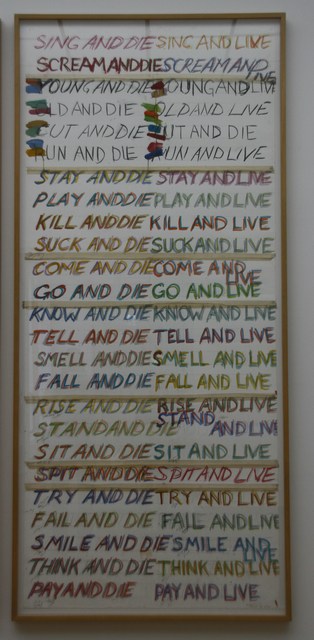 SING AND DIE SING AND LIVE
SCREAM AND DIE SCREAM AND LIVE
YOUNG AND DIE YOUNG AND LIV
OLD AND DIE OLD AND LIVE
CUT AND DIE CUT AND DIE
RUN AND DIE RUN AND LIVE
STAY AND DIE STAY AND LIVE
PLAY AND DIE PLAY AND LIVE
KILL AND DIE KILL AND LIVE
SUCK AND DIE SUCK AND LIVE
COME AND DIE COME AND LIVE
GO AND DIE GO AND LIVE
KNOW AND DIE KNOW AND LIVE
TELL AND DIE TELL AND LIVE
SMELL AND DIE SMELL AND LIVE
FALL AND DIE FALL AND LIVE
RISE AND DIE RISE AND LIVE
STAND AND DIE STAND AND LIVE
SIT AND DIE SIT AND LIVE
SPIT AND DIE SPIT AND LIVE
TRY AND DIE TRY AND LIVE
FAIL AND DIE FAIL AND LIVE
SMILE AND DIE SMILE AND LIVE
THINK AND DIE THINK AND LIVE
PAY AND DIE PAY AND LIVE